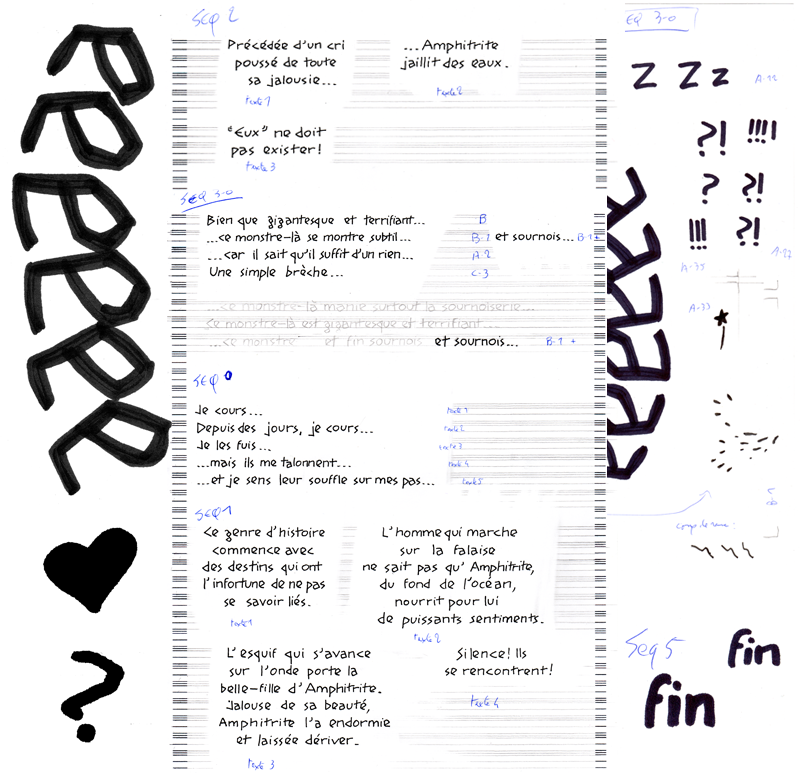 RRRRRR
?
SEQ 2
Précédée d'un cri
poussé de toute
sa jalousie...
texte 1
...Amphitrite
jaillit des eaux.
texte 2
"Eux" ne doit
pas exister!
texte 3
SEQ 3-0
Bien que gigantesque et terrifiant... B
...ce monstre-là se montre subtil... B-1 et sournois... B-1+
...car il sait qu'il suffit d'un rien... A-2
Une simple brèche... C-3
...ce monstre-là manie surtout la sournoiserie...
Ce monstre-là est gigantesque et terrifiant...
...ce monstre et fin sournois et sournois... B-1 +
SEQ 0
Je cours... texte 1
Depuis des jours, je cours... texte 2
Je les fuis... texte 3
...mais ils me talonnent... texte 4
...et je sens leur souffle sur mes pas... texte 5
SEQ 1
Ce genre d'histoire
commence avec
des destins qui ont
l'infortune de ne pas
se savoir liés.
texte 1
L'homme qui marche
sur la falaise
ne sait pas qu'Amphitrite,
du fond de l'océan,
nourrit pour lui
de puissants sentiments.
texte 2
L'esquif qui s'avance
sur l'onde porte la
belle-fille d'Amphitrite.
Jalouse de sa beauté,
Amphitrite l'a endormie
et laissée dériver.
texte 3
Silence! Ils
se rencontrent!
texte 4
EQ 3-0
Z Z z
?! !!!!
? ?!
!!! ?!
A-33
RRRR
Seq 5
fin
fin